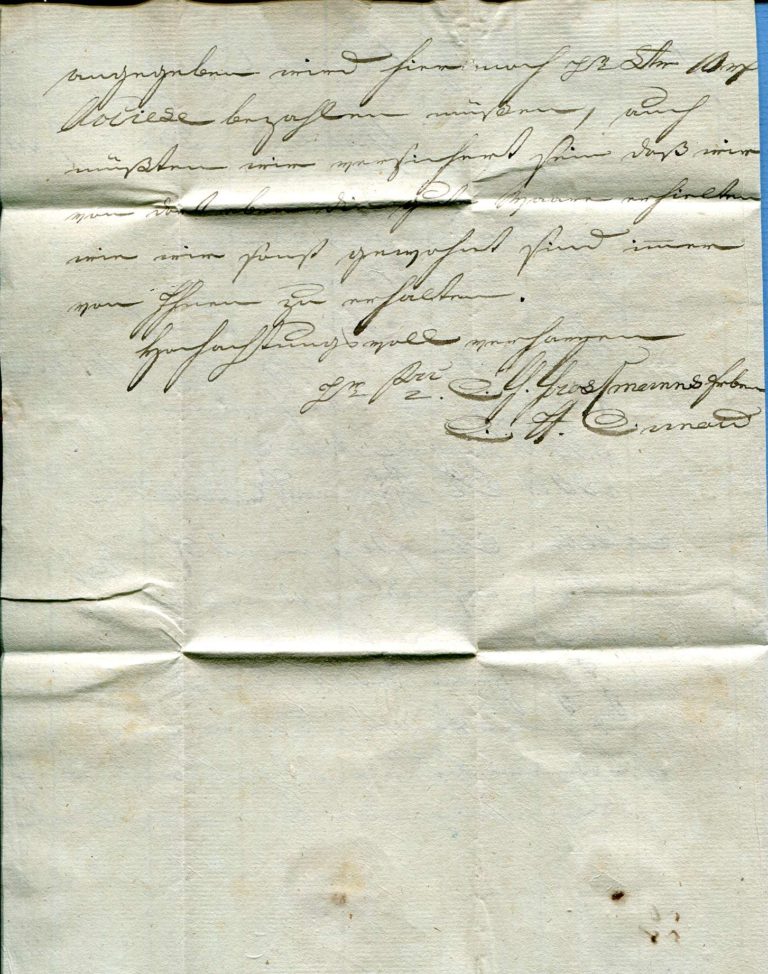 angegeben wird hier noch pr Ctr 10 rg
Accise bezahlen müßen, auch
müßten wir versichert sein daß wir
von dort eben die gute Waare erhielten
wie wir sonst gewohnt sind immer
von Ihnen zu erhalten.
Hochachtungsvoll verharren
pr pra C. G. Grossmanns Erben
C. F.